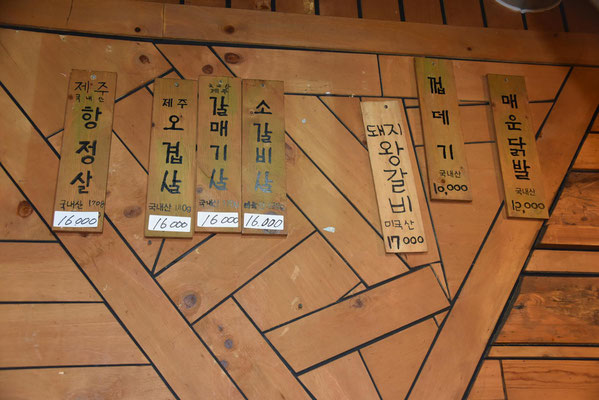 제주
국내산
항정살
국내산 170g
16000
제주
오겹살
국내산 180g
16000
갈매기살
국내산
16.000
소갈비살
16.000
돼지
왕갈비
미국산
17000
껍데기
10,000
매운닭발
국내산